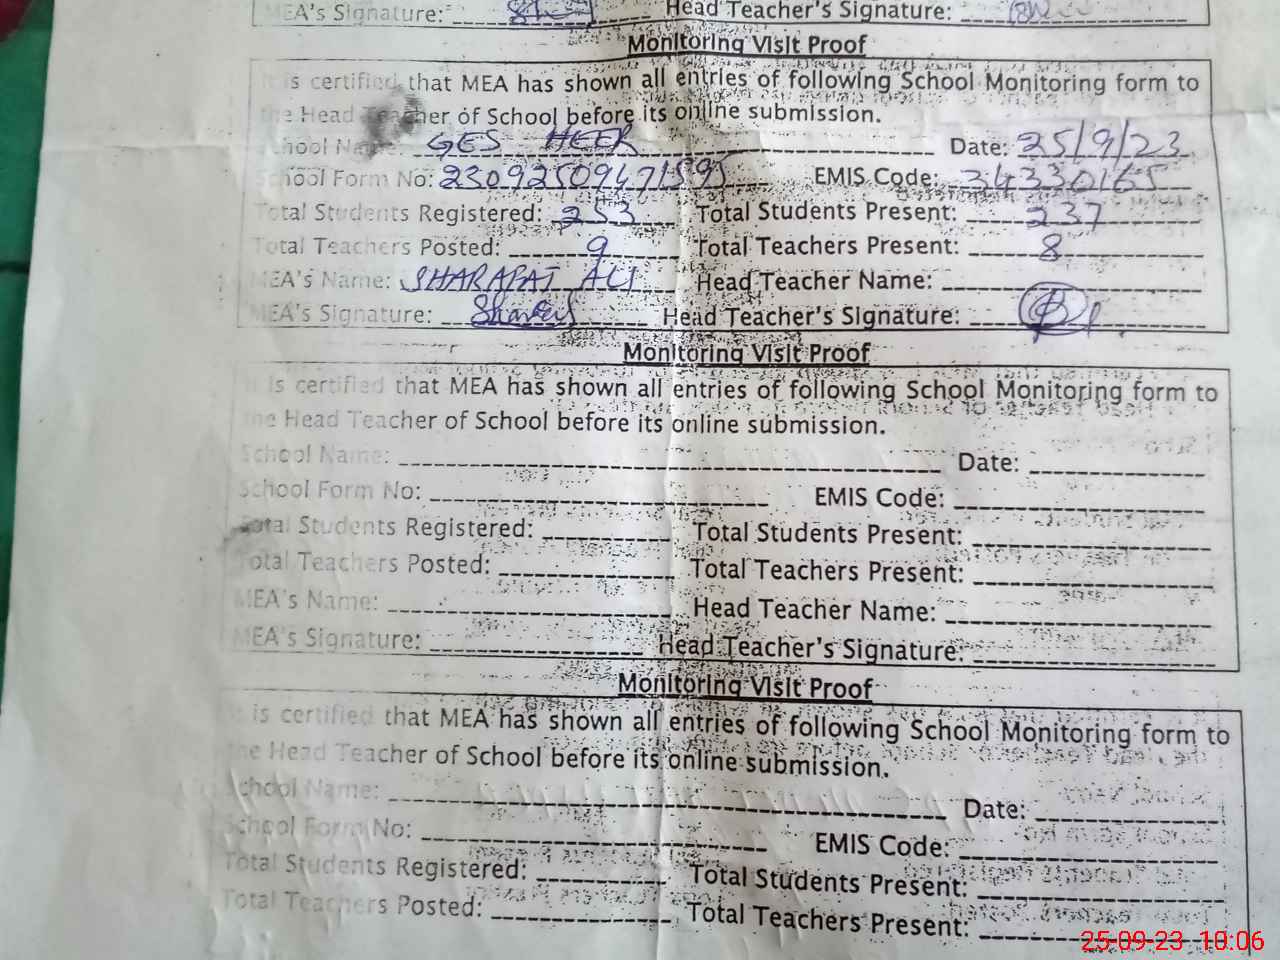 MEA's Signature: Head Teacher's Signature:
Monitoring Visit Proof
It is certified that MEA has shown all entries of following School Monitoring form to
the Head Teacher of School before its online submission.
School Name: GES HEER Date: 25/9/23
School Form No: 23092509471595 EMIS Code: 34330165
Total Students Registered: 253 Total Students Present: 237
Total Teachers Posted: 9 Total Teachers Present: 8
MEA's Name: SHARAFAT ALI Head Teacher Name:
MEA's Signature: Head Teacher's Signature:
Monitoring Visit Proof
It is certified that MEA has shown all entries of following School Monitoring form to
the Head Teacher of School before its online submission.
School Name: Date:
School Form No: EMIS Code:
Total Students Registered: Total Students Present:
Total Teachers Posted: Total Teachers Present:
MEA's Name: Head Teacher Name:
MEA's Signature: Head Teacher's Signature:
Monitoring Visit Proof
It is certified that MEA has shown all entries of following School Monitoring form to
the Head Teacher of School before its online submission.
School Name: Date:
School Form No: EMIS Code:
Total Students Registered: Total Students Present:
Total Teachers Posted: Total Teachers Present:
25-09-23 10:06